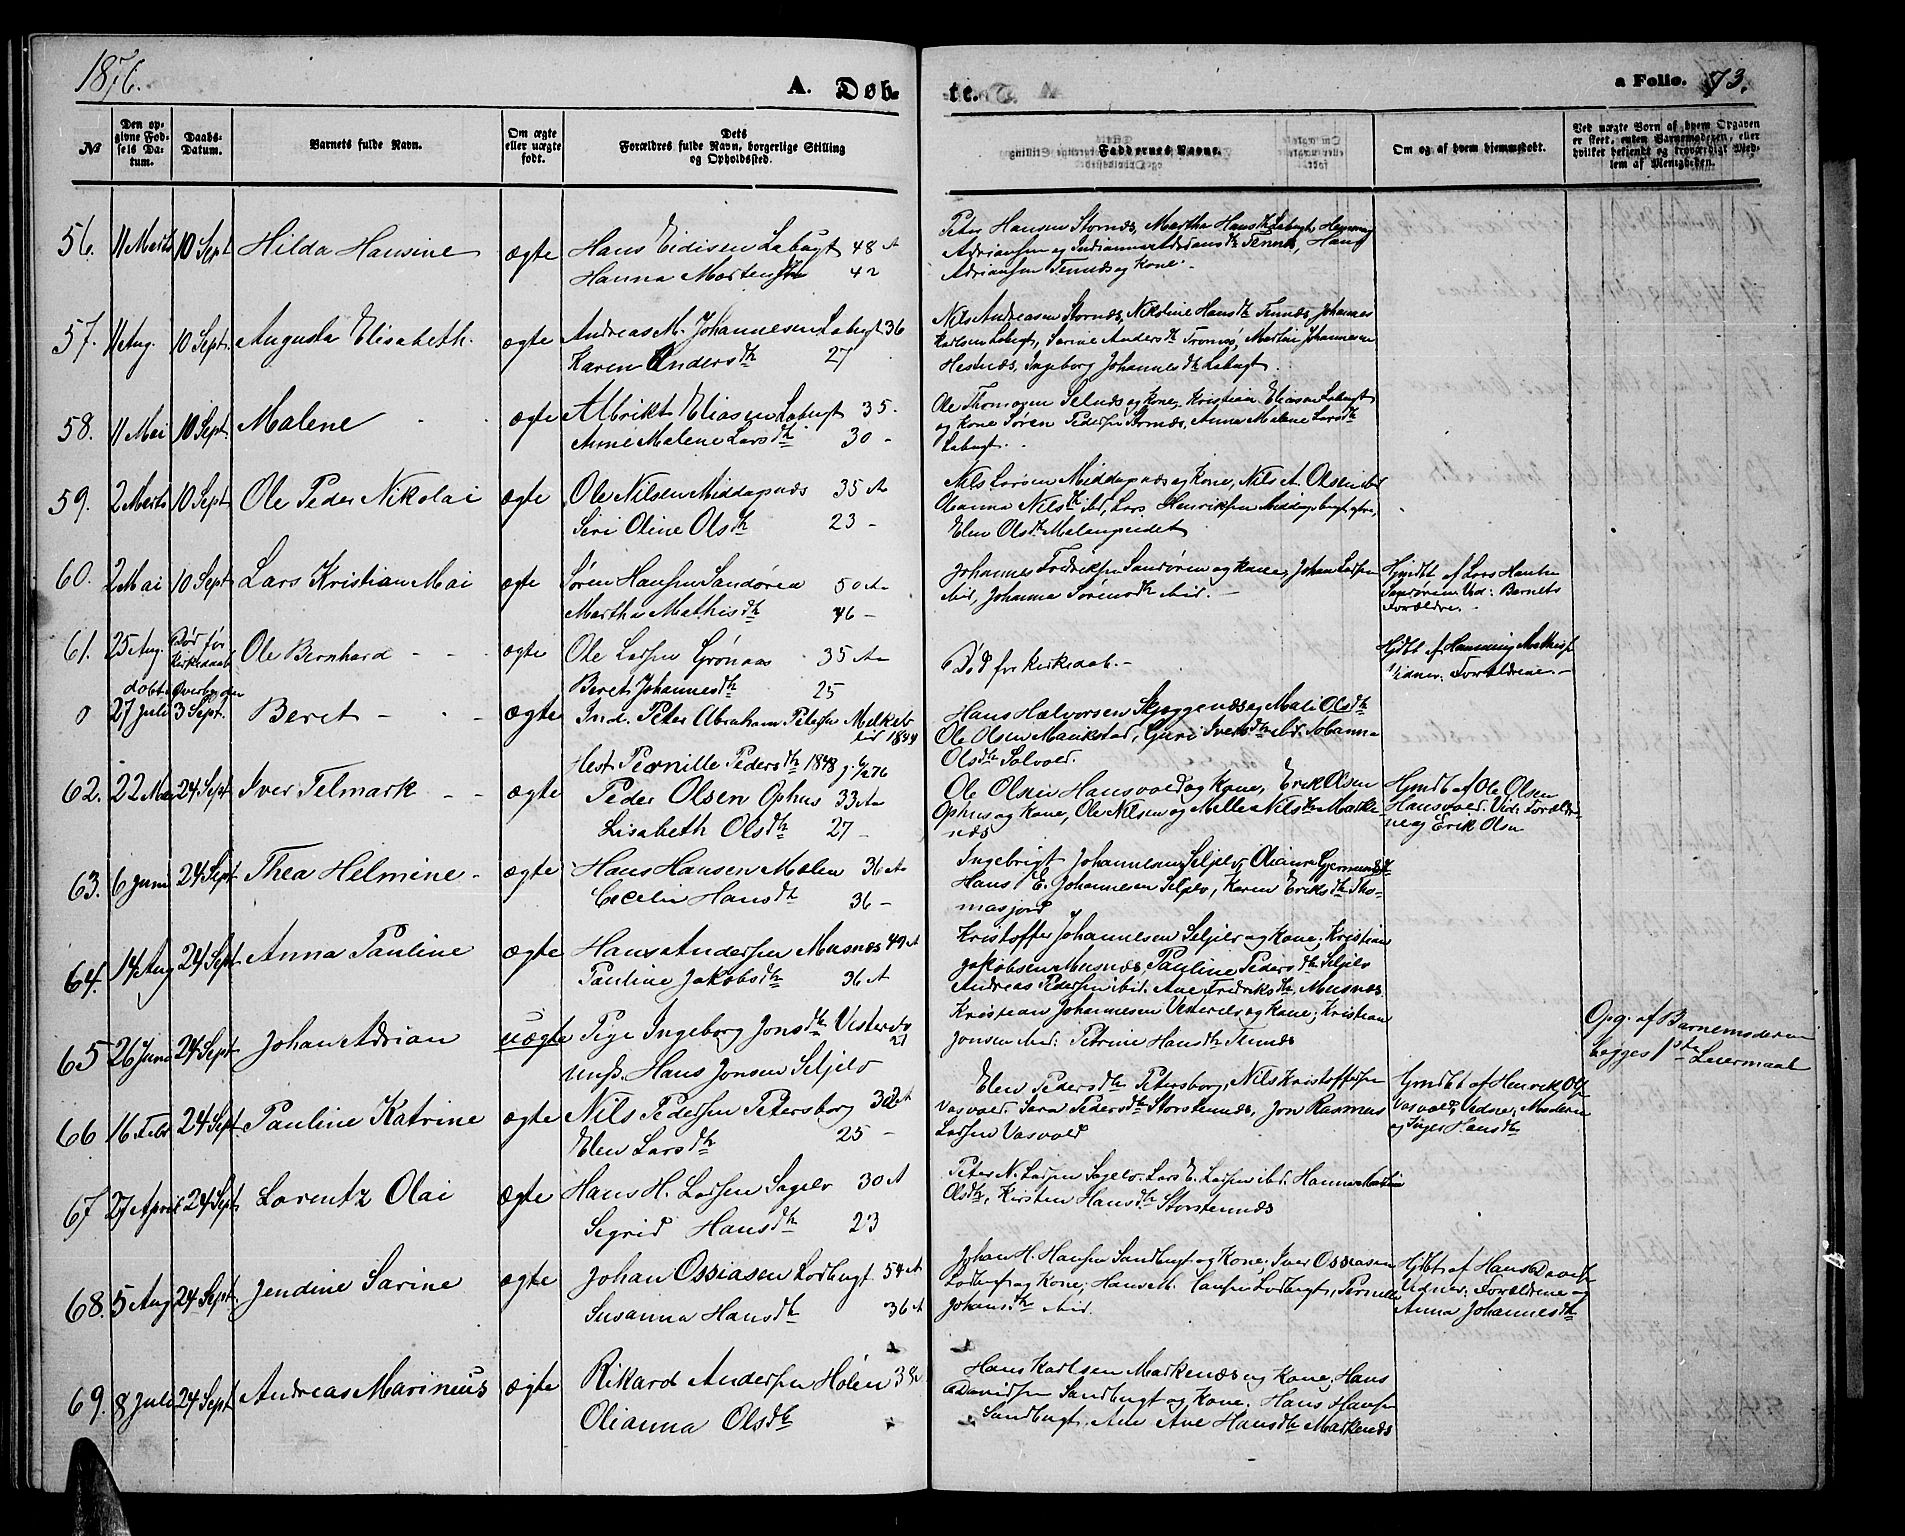 1876.
A. Døb-
te.
a Folio. 73.
No
Den op-
givne Fød-
sels Da-
tum.
Daabs-
Datum.
Barnets fulde Navn.
Om ægte
eller uægte
født.
Dets
Forældres fulde Navn, borgerlige Stilling
og Opholdssted.
Faddernes Navne.
Om og af hvem hjemmedøbt.
Ved uægte Børn af hvem Opgaven
er skeet, enten Barnemoderen, eller
hvilket bekjendt og troværdigt Med-
lem af Menigheden.
56. 11 Marts 10 Sept Hilda Hansine ægte Hans Eidisen Labugt 48 A
Hanna Mortensdtr 42
Peter Hansen Stornæs, Martha Hansdtr Labugt, Henning
Adriansen og Indianna Adriansdtr Tennæs, Hans
Adriansen Tennæs og Kone.
57. 11 Aug. 10 Sept. Augusta Elisabeth. ægte Andreas M. Johannesen Labugt 36
Karen Andersdtr 27
Nils Andreasen Stornæs, Nikoline Hansdtr Tennæs, Johannes
Karlsen Labugt, Sarine Andersdtr Tromsø, Martin Johannesen
Hestnæs, Ingeborg Johannesdtr Labugt.
58. 11 Mai 10 Sept. Malene ægte Albrikt Eliasen Labugt 35.
Anne Malene Larsdtr 30 -
Ole Thomasen Selnæs og Kone, Kristian Eliasen Labugt
og Kone Søren Pedersen Stornæs, Anna Malene Larsdtr
Labugt.
59. 2 Marts 10 Sept Ole Peder Nikolai ægte Ole Nilsen Middagsnæs 35 A
Siri Oline Olsdtr 23 -
Nils Larsen Middagsnæs og Kone, Nils A. Olsen ibd
Olianna Nilsdtr ibd, Lars Henriksen Middagsbugt,
Elen Olsdtr Malangseidet
60. 2 Mai 10 Sept Lars Kristian Mai ægte Søren Hansen Sandøren 50 A
Martha Mathisdtr 46 -
Johannes Fredriksen Sandøren og Kone, Johan Larsen
ibid, Johanna Sørensdtr ibid. -
Hjmdbt af Lars Hansen
Sandøren Vid: Barnets
Forældre. -
61. 25 Aug. Død før
Kirkedaab Ole Bernhard ægte Ole Larsen Grønaas 35 A
Beret Johannesdtr 25
Død før Kirkedaab. -
Hjdbt af Henning Mathisf
Vidner: Forældrene. -
døbt Øverbygden
0 27 Juli 3 Sept. Beret ægte Ind. Peter Abraham Petersen Melkelv
1844
Hst. Pernille Pedersdtr 1848 g. 6/2 76
Hans Halvorsen Skjæggenæs og Mali Olsdtr
Ole Olsen Maukstad, Guri Iversdtr ibd. Johanna
Olsdtr Solvold.
62. 22 Mai 24 Sept Iver Telmark ægte Peder Olsen Ophus 33 A
Lisabeth Olsdtr 27 -
Ole Olsen Hansvold og Kone, Erik Olsen
Ophus og Kone, Ole Nilsen og Melle Nilsdtr Marke-
næs
Hjmdbt af Ole Olsen
Hansvold. Vid: Forældre-
ne og Erik Olsen
63. 6 Juni 24 Sept Thea Helmine ægte Hans Hansen Målen 36 A
Cecelia Hansdtr 36 -
Ingebrigt Johannesen Seljelv, Oliana Gjermundsdtr
Hans E. Johannesen Seljelv, Karen Eriksdtr Tho-
masjord
64. 14 Aug 24 Sept Anna Pauline ægte Hans Andersen Musnæs 49 A
Pauline Jakobsdtr 36 A
Kristoffer Johannesen Seljelv og Kone, Kristian
Jakobsen Musnæs, Pauline Pedersdtr Seljelv
Andreas Pedersen ibid. Ane Fredriksdtr Musnæs
65 26 Juni 24 Sept Johan Adrian uægte Pige Ingeborg Jonsdtr Vesterelv
21
Ungk. Hans Jonsen Seljelv
Kristian Johannesen Vesterelv og Kone, Kristian
Jonsen ibid. Petrine Hansdtr Tennæs
Opg. af Barnemoderen
begges 1ste Leiermaal
66 16 Febr 24 Sept. Pauline Katrine ægte Nils Pedersen Petersborg 32 A
Elen Larsdtr 25 -
Elen Pedersdtr Petersborg, Nils Kristoffersen
Vasvold, Sara Pedersdtr Storstennæs, Jon Rasmus
Larsen Vasvold
Hjmdbt af Henrik Ols.
Vasvold, Vidne: Moderen
og Inger Hansdtr
67 27 April 24 Sept Lorentz Olai ægte Hans H. Larsen Sagelv 30 A
Sigrid Hansdtr 23
Peter N. Larsen Sagelv. Lars E. Larsen ibd. Hanna Martin
Olsdtr, Kirsten Hansdtr Storstennæs
68. 5 Aug 24 Sept. Jendine Sarine ægte Johan Ossiasen Lodbugt 54 A
Susanna Hansdtr 36 A
Johan H. Hansen Sandbugt og Kone, Iver Ossiasen
Lodbugt og Kone, Hans M. Hansen Lodbugt, Pernille
Johansdtr ibid.
Hjdbt af Hans Davidsen
Vidner: Forældrene og
Anna Johannesdtr
69. 8 Juli 24 Sept Andreas Marinius ægte Rikard Andersen Holen 38
Olianna Olsdtr
Hans Karlsen Markenæs og Kone, Hans
Davidsen Sandbugt og Kone. Hans Hansen
Sandbugt, Ane Hansdtr Markenæs